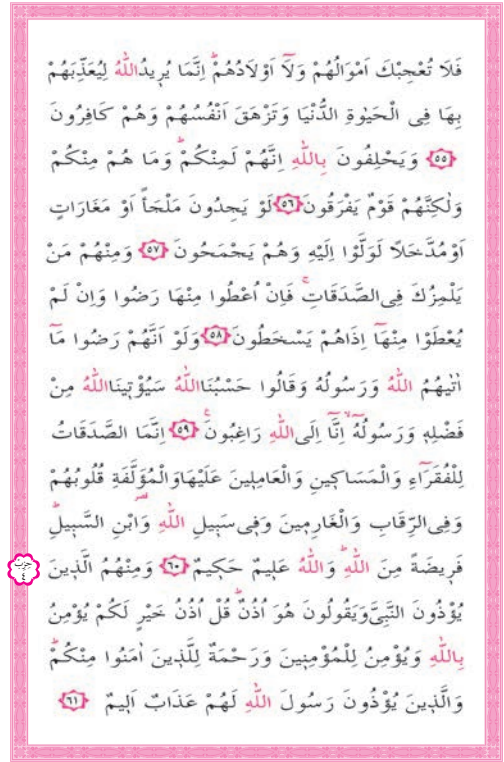 فَلَا تُعْجِبْكَ اَمْوَالُهُمْ وَلَٓا اَوْلَادُهُمْۜ اِنَّمَا يُر۪يدُ اللّٰهُ لِيُعَذِّبَهُمْ
بِهَا فِى الْحَيٰوةِ الدُّنْيَا وَتَزْهَقَ اَنْفُسُهُمْ وَهُمْ كَافِرُونَ
﴿٥٥﴾ وَيَحْلِفُونَ بِاللّٰهِ اِنَّهُمْ لَمِنْكُمْۜ وَمَا هُمْ مِنْكُمْ
وَلٰكِنَّهُمْ قَوْمٌ يَفْرَقُونَ ﴿٥٦﴾ لَوْ يَجِدُونَ مَلْجَأً اَوْ مَغَارَاتٍ
اَوْ مُدَّخَلًا لَوَلَّوْا اِلَيْهِ وَهُمْ يَجْمَحُونَ ﴿٥٧﴾ وَمِنْهُمْ مَنْ
يَلْمِزُكَ فِى الصَّدَقَاتِۚ فَاِنْ اُعْطُوا مِنْهَا رَضُوا وَاِنْ لَمْ
يُعْطَوْا مِنْهَٓا اِذَا هُمْ يَسْخَطُونَ ﴿٥٨﴾ وَلَوْ اَنَّهُمْ رَضُوا مَٓا
اٰتٰيهُمُ اللّٰهُ وَرَسُولُهُ وَقَالُوا حَسْبُنَا اللّٰهُ سَيُؤْت۪ينَا اللّٰهُ مِنْ
فَضْلِه۪ وَرَسُولُهُٓۙ اِنَّٓا اِلَى اللّٰهِ رَاغِبُونَ۟ ﴿٥٩﴾ اِنَّمَا الصَّدَقَاتُ
لِلْفُقَرَٓاءِ وَالْمَسَاك۪ينِ وَالْعَامِل۪ينَ عَلَيْهَا وَالْمُؤَلَّفَةِ قُلُوبُهُمْ
وَفِى الرِّقَابِ وَالْغَارِم۪ينَ وَف۪ى سَب۪يلِ اللّٰهِ وَابْنِ السَّب۪يلِۜ
فَر۪يضَةً مِنَ اللّٰهِۜ وَاللّٰهُ عَل۪يمٌ حَك۪يمٌ ﴿٦٠﴾ وَمِنْهُمُ الَّذ۪ينَ
حزب ٤
يُؤْذُونَ النَّبِىَّ وَيَقُولُونَ هُوَ اُذُنٌۜ قُلْ اُذُنُ خَيْرٍ لَكُمْ يُؤْمِنُ
بِاللّٰهِ وَيُؤْمِنُ لِلْمُؤْمِن۪ينَ وَرَحْمَةٌ لِلَّذ۪ينَ اٰمَنُوا مِنْكُمْۜ
وَالَّذ۪ينَ يُؤْذُونَ رَسُولَ اللّٰهِ لَهُمْ عَذَابٌ اَل۪يمٌ ﴿٦١﴾